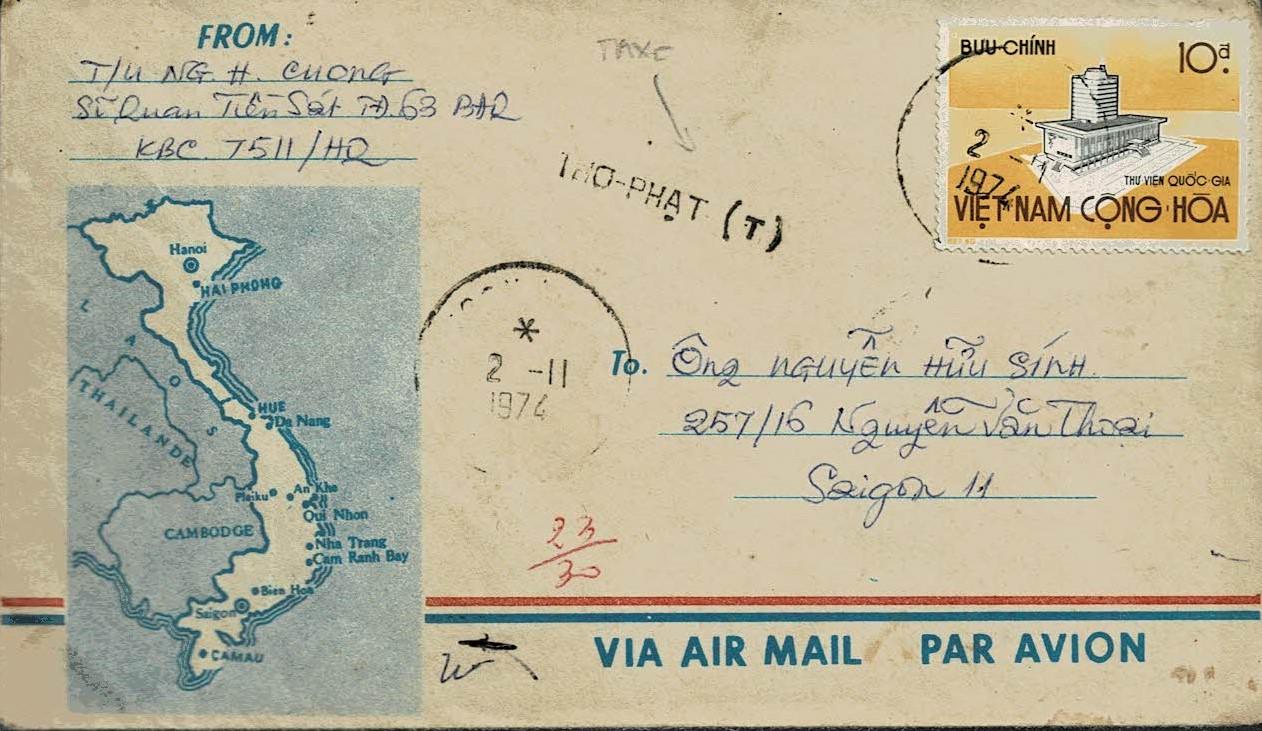 FROM:
T/U NG. H. CUONG
Sĩ Quan Tiền Sát TĐ.63 BĐQ
KBC. 7511/HQ
TAXE
THO-PHẠT (T)
BƯU-CHÍNH 10đ.
2 -11
1974
THƯ VIỆN QUỐC-GIA
VIỆT NAM CỘNG HÒA
Hanoi
HAI PHONG
LAOS
THAILANDE
HUE
Da Nang
Pleiku
An Khe
Qui Nhon
CAMBODGE
Nha Trang
Cam Ranh Bay
Bien Hoa
Saigon
CAMAU
*
2 -11
1974
To. Ông NGUYỄN HỮU SÍNH
257/16 Nguyễn Văn Thoại
Saigon 11
23
30
VIA AIR MAIL PAR AVION